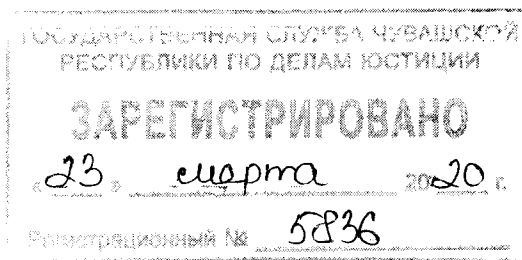 ГОСУДАРСТВЕННАЯ СЛУЖБА ЧУВАШСКОЙ
РЕСПУБЛИКИ ПО ДЕЛАМ ЮСТИЦИИ
ЗАРЕГИСТРИРОВАНО
« 23 » марта 2020 г.
Регистрационный № 5836